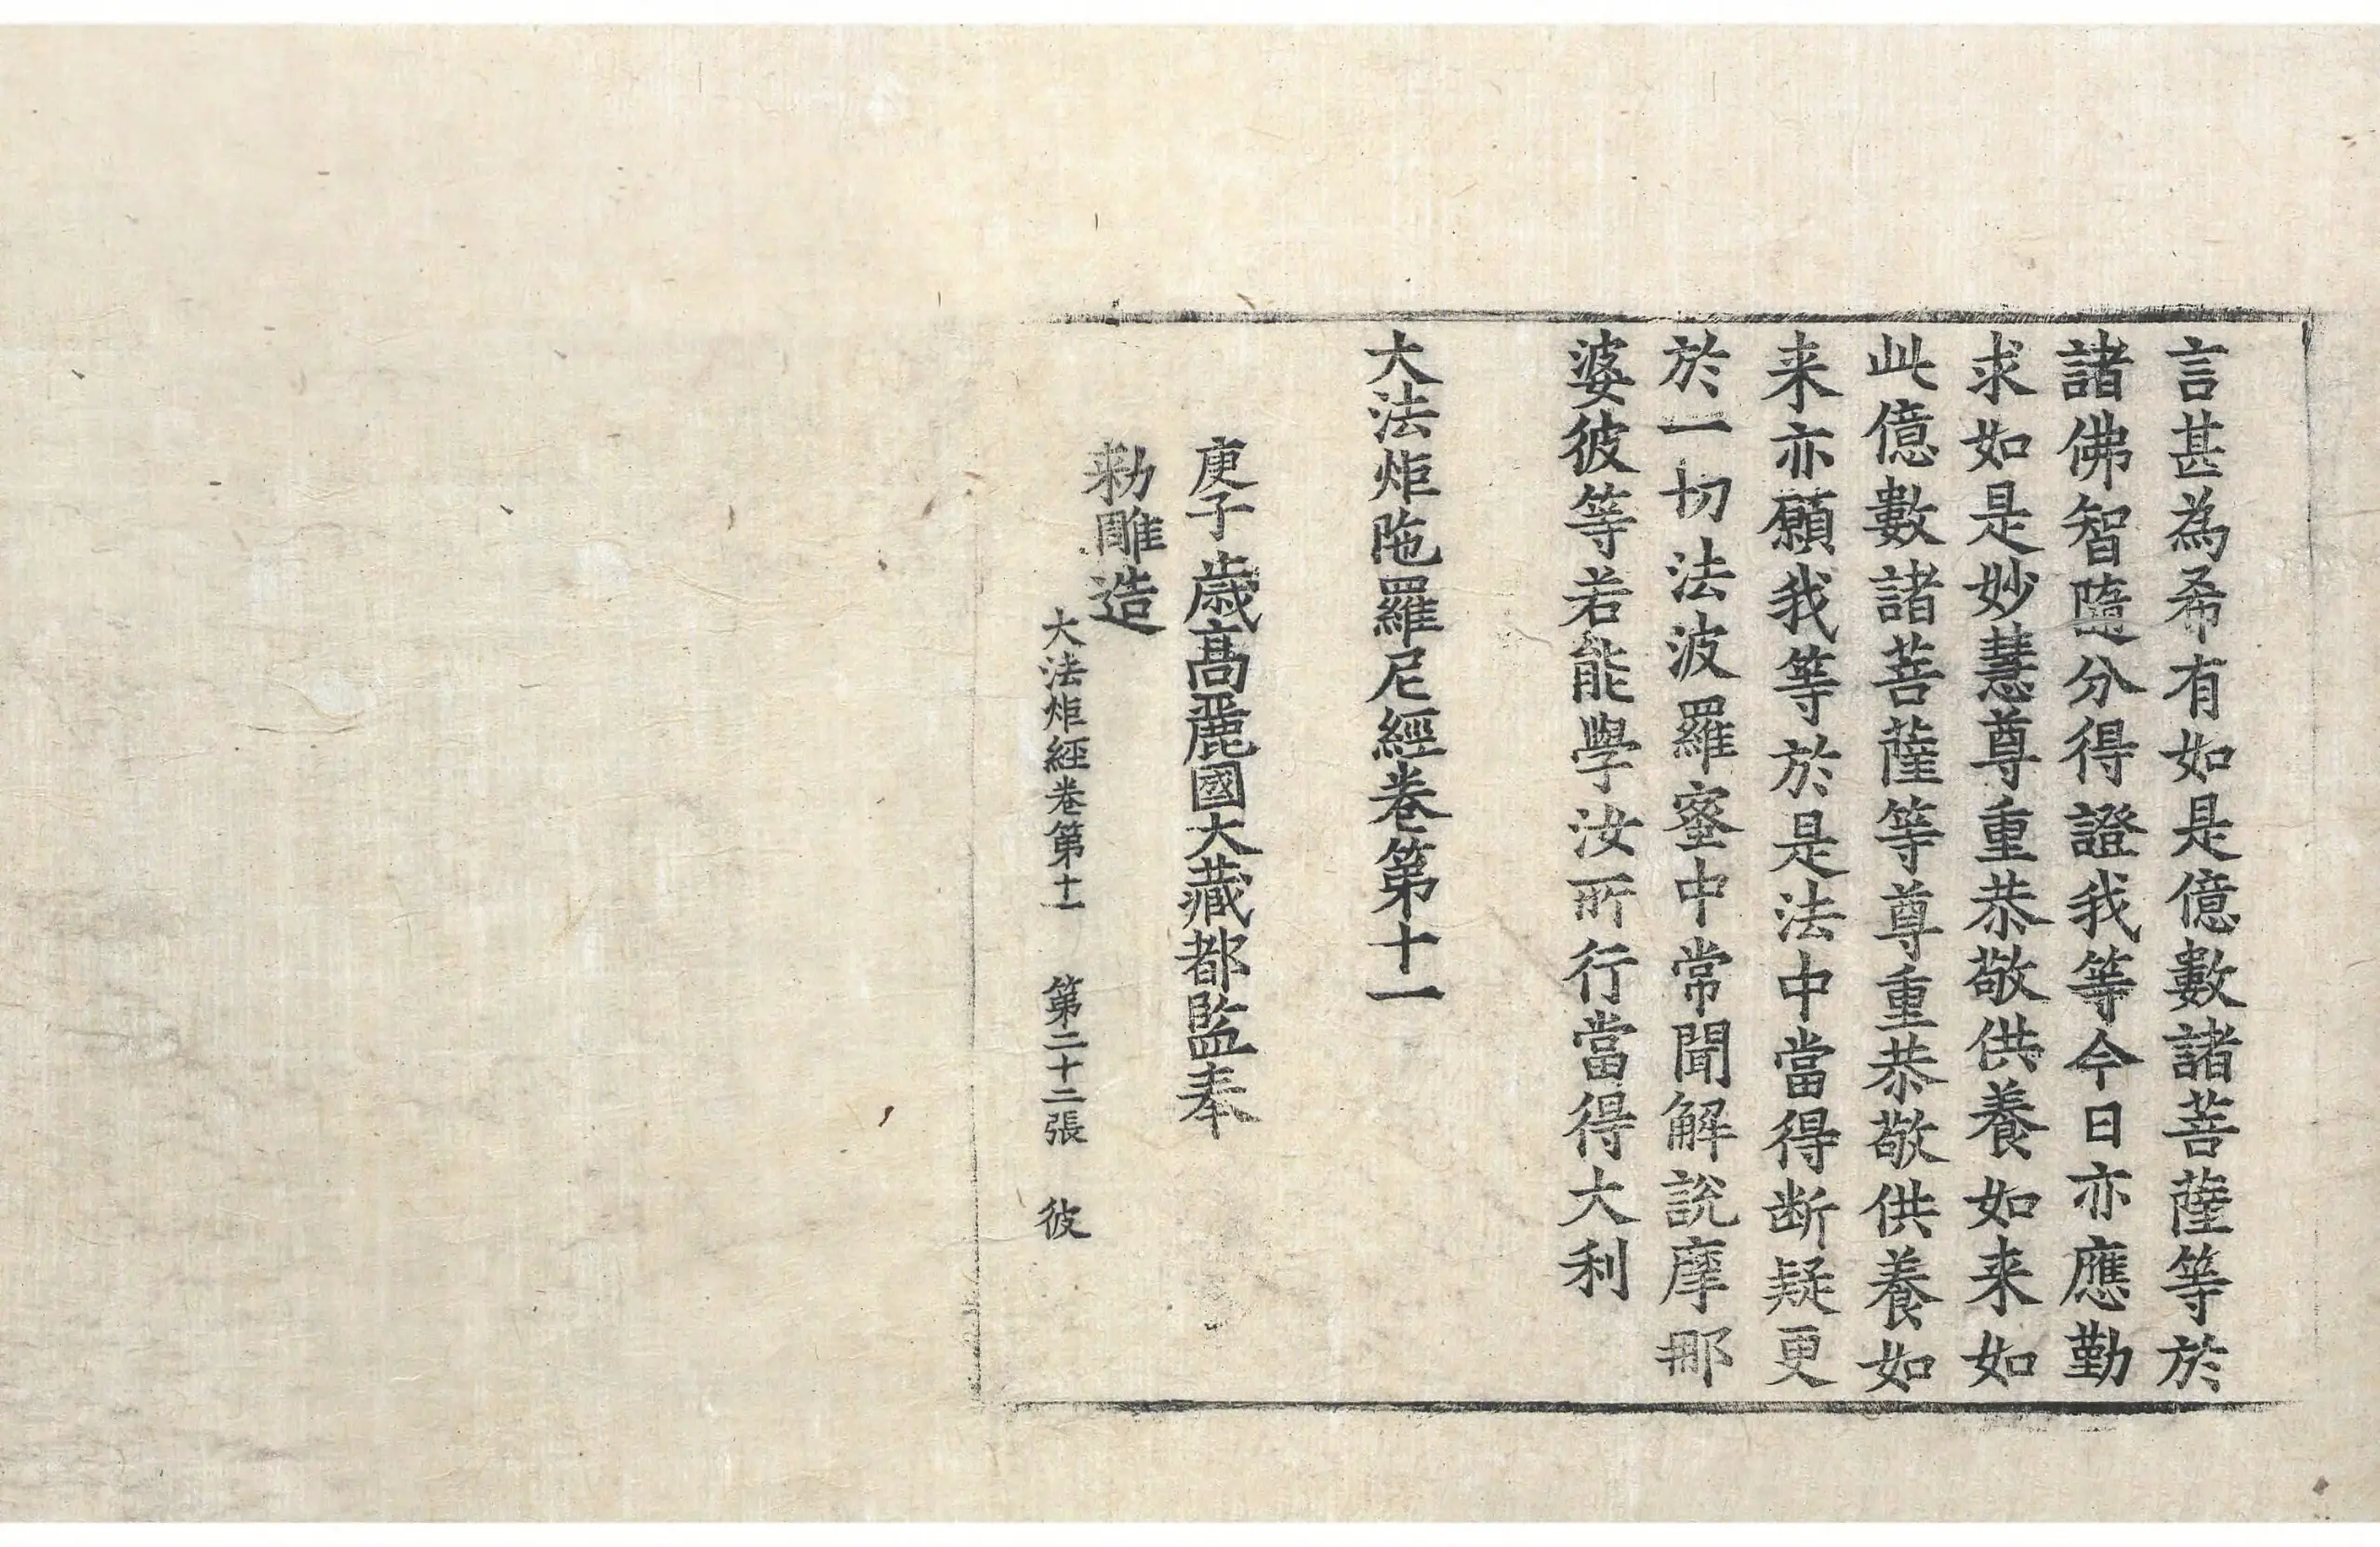 言甚為希有如是億數諸菩薩等於
諸佛智隨分得證我等今日亦應勤
求如是妙慧尊重恭敬供養如来如
此億數諸菩薩等尊重恭敬供養如
来亦願我等於是法中當得断疑更
於一切法波羅蜜中常聞解說摩那
婆彼等若能學汝所行當得大利
大法炬陁羅尼經卷第十一
庚子歲高麗國大藏都監奉
勑雕造
大法炬經卷第十一 第二十二張 彼